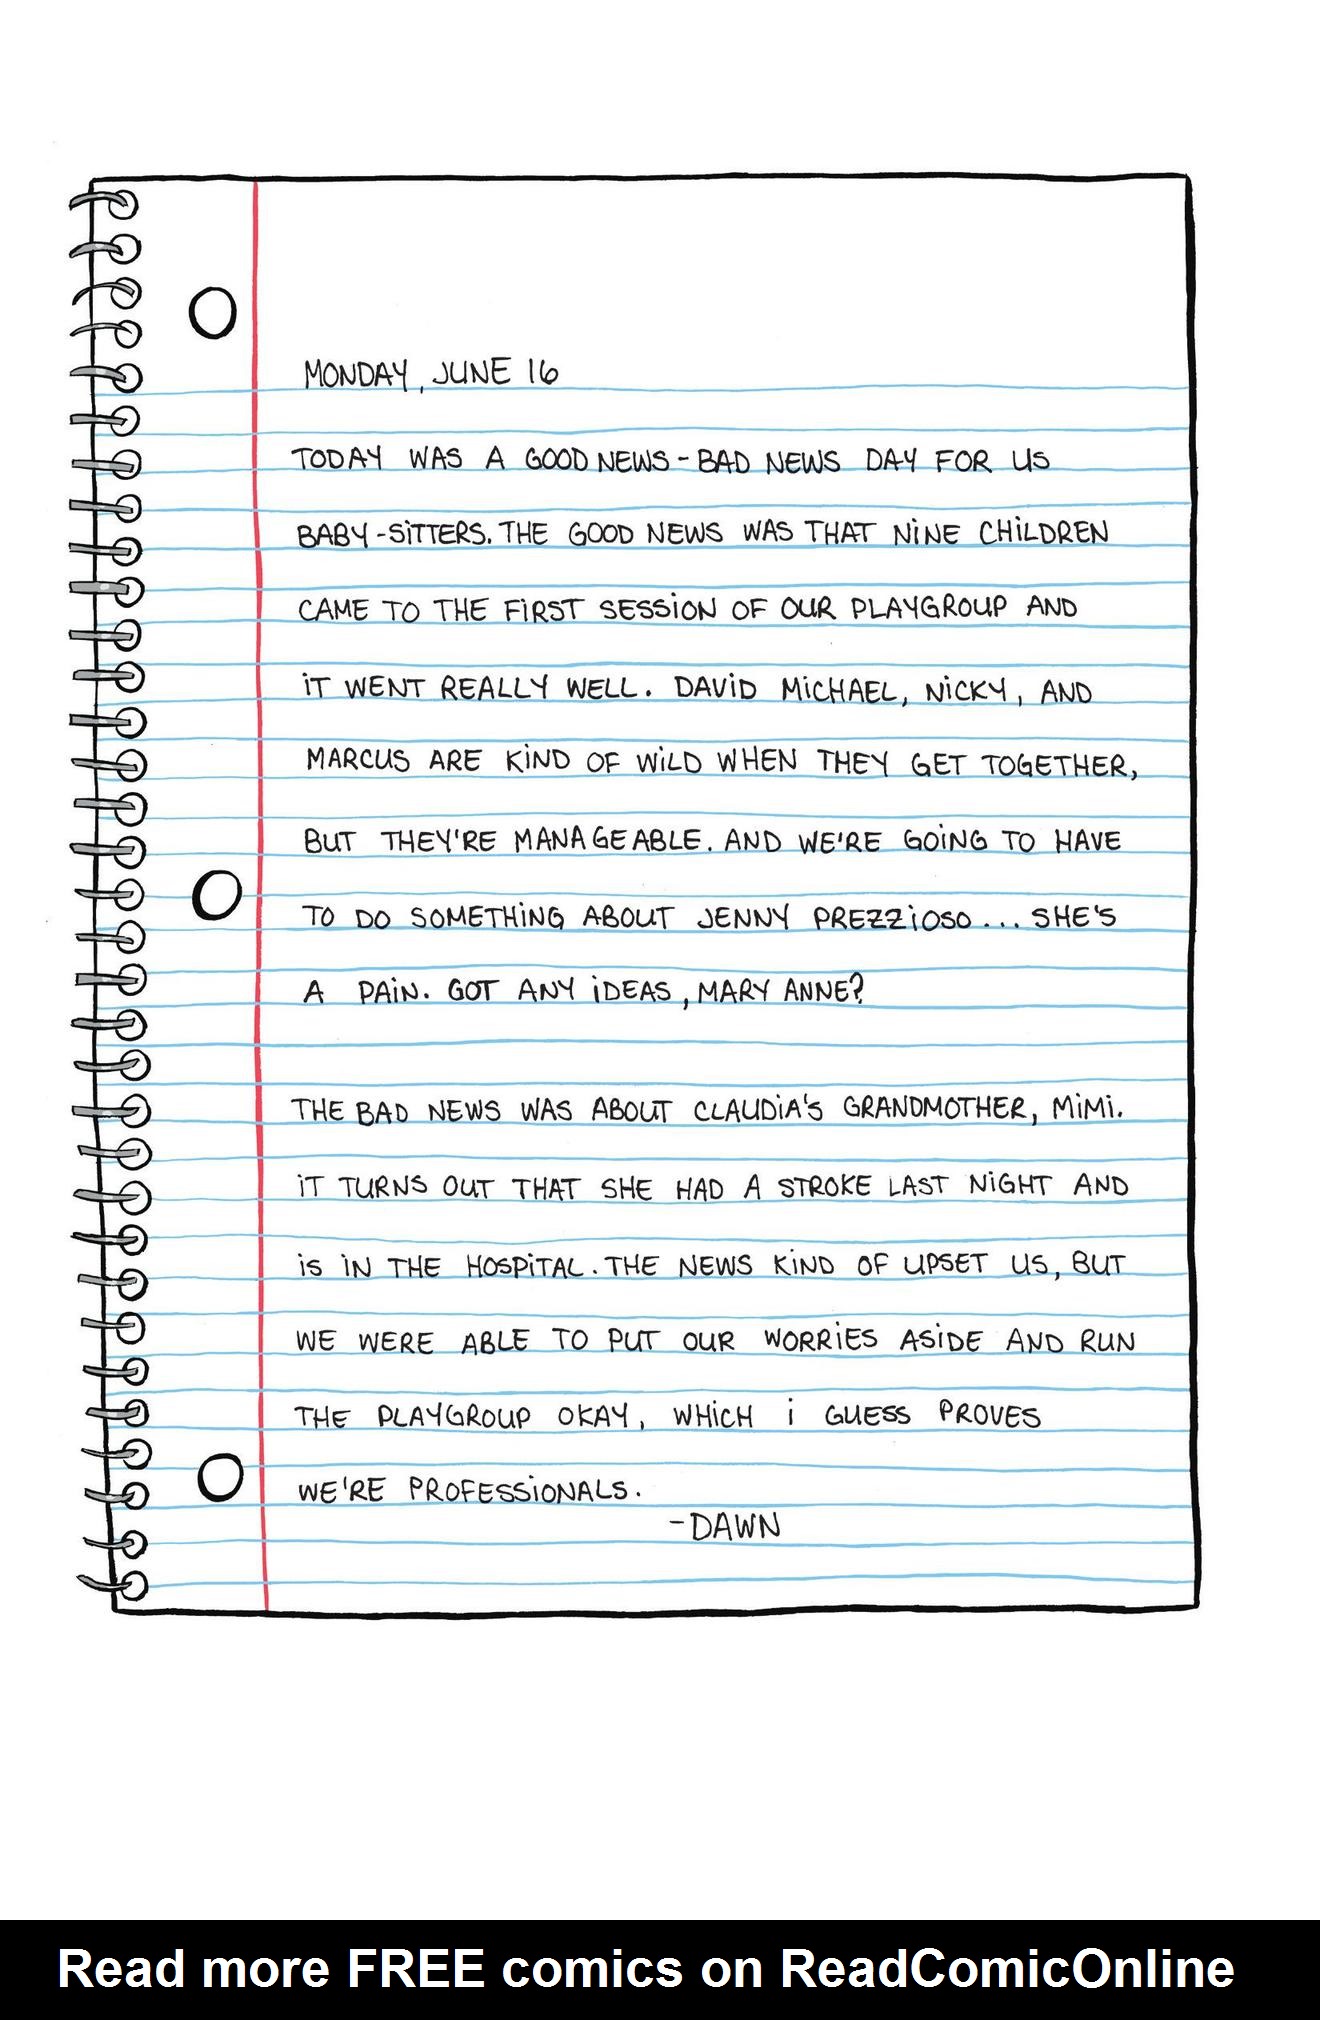 MONDAY, JUNE 16
TODAY WAS A GOOD NEWS-BAD NEWS DAY FOR US
BABY-SITTERS. THE GOOD NEWS WAS THAT NINE CHILDREN
CAME TO THE FIRST SESSION OF OUR PLAYGROUP AND
IT WENT REALLY WELL. DAVID MICHAEL, NICKY, AND
MARCUS ARE KIND OF WILD WHEN THEY GET TOGETHER,
BUT THEY'RE MANAGEABLE. AND WE'RE GOING TO HAVE
TO DO SOMETHING ABOUT JENNY PREZZIOSO... SHE'S
A PAIN. GOT ANY IDEAS, MARY ANNE?
THE BAD NEWS WAS ABOUT CLAUDIA'S GRANDMOTHER, MIMI.
IT TURNS OUT THAT SHE HAD A STROKE LAST NIGHT AND
IS IN THE HOSPITAL. THE NEWS KIND OF UPSET US, BUT
WE WERE ABLE TO PUT OUR WORRIES ASIDE AND RUN
THE PLAYGROUP OKAY, WHICH I GUESS PROVES
WE'RE PROFESSIONALS.
-DAWN
Read more FREE comics on ReadComicOnline